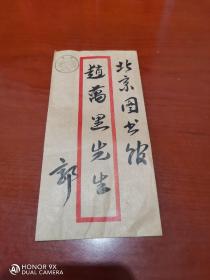 北京图书馆
趙萬里先生
郭
HONOR 9X
DUAL CAMERA